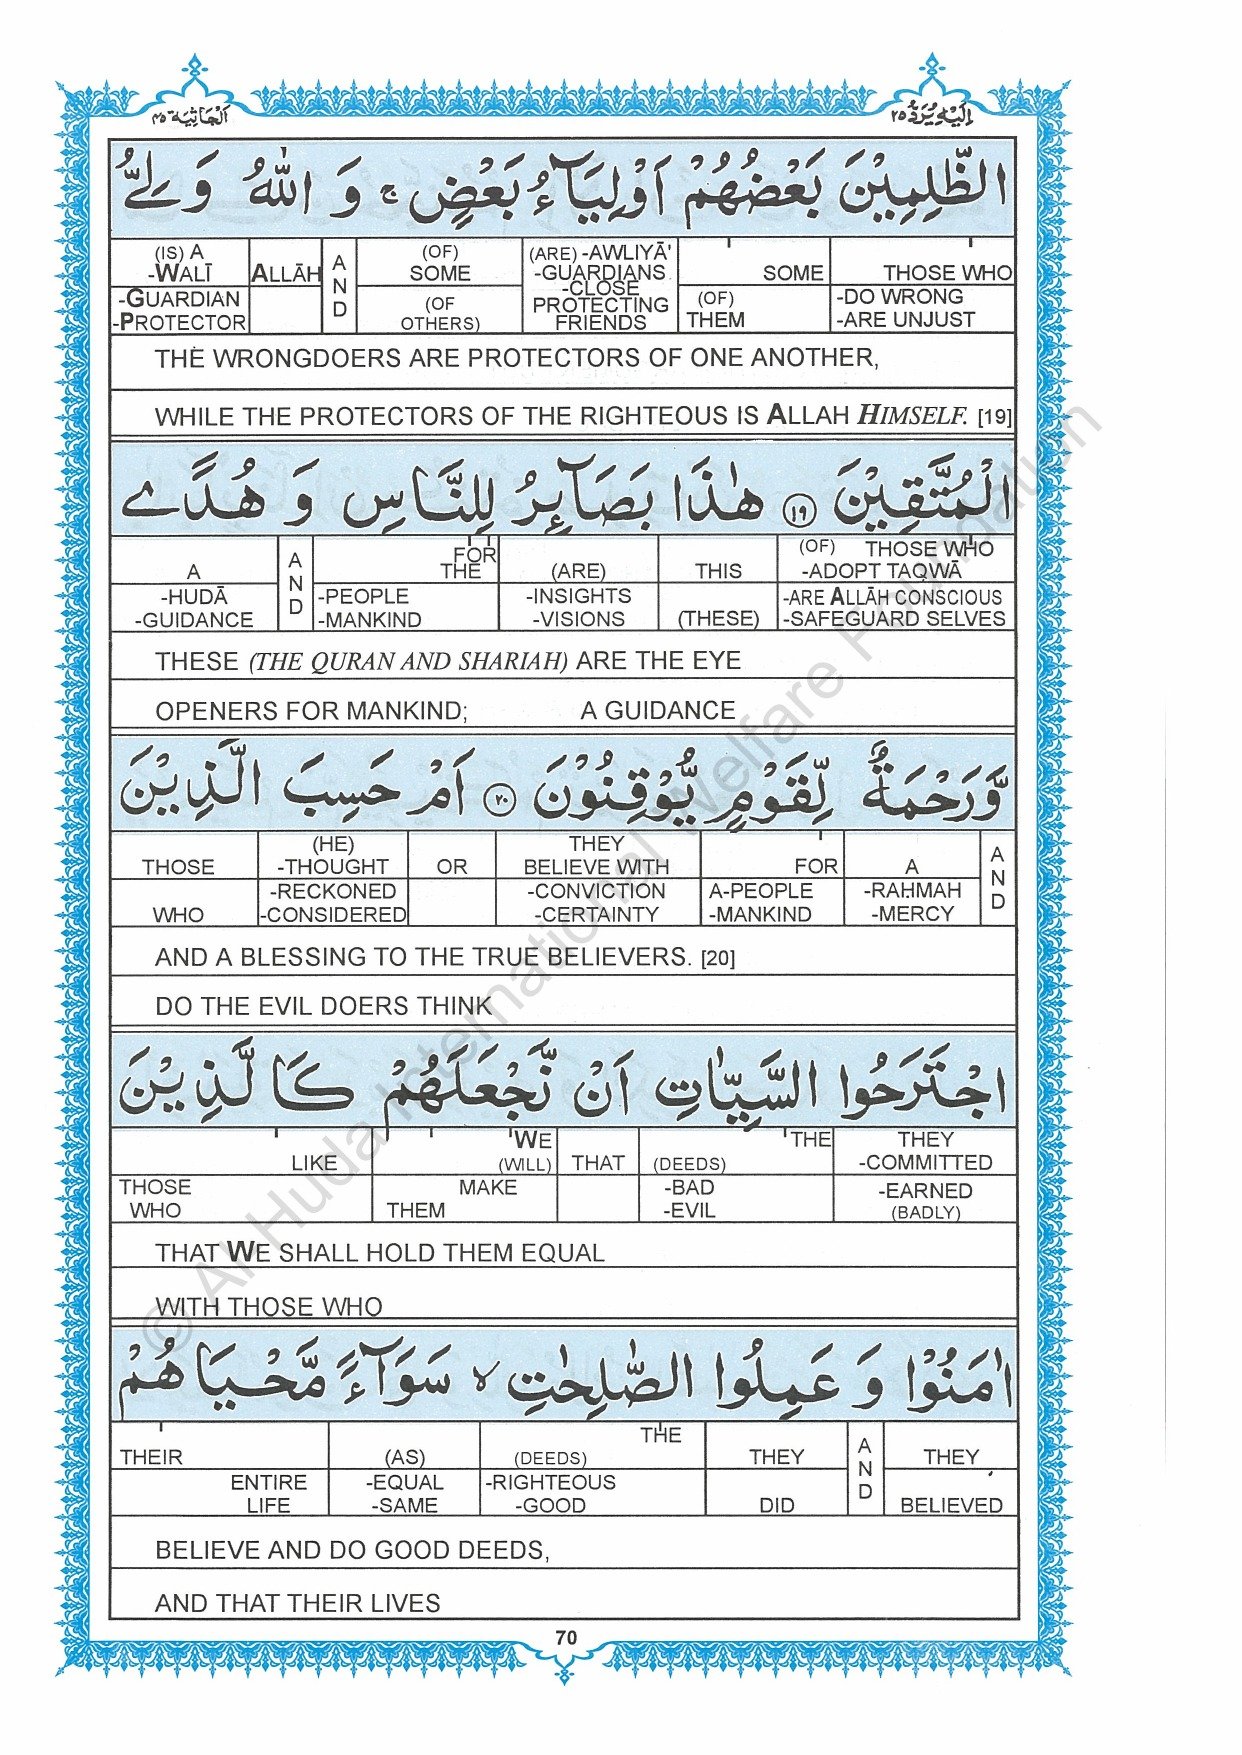 اَلْجَاثِيَة ٤٥
اِلَيْهِ يُرَدُّ ٢٥
الظّٰلِمِيْنَ بَعْضُهُمْ اَوْلِيَآءُ بَعْضٍ ۚ وَ اللّٰهُ وَلِيُّ
(IS) A -WALĪ ALLĀH AND (OF) SOME (ARE) -AWLIYĀ' -GUARDIANS -CLOSE SOME THOSE WHO
-GUARDIAN -PROTECTOR (OF OTHERS) PROTECTING FRIENDS (OF) THEM -DO WRONG -ARE UNJUST
THE WRONGDOERS ARE PROTECTORS OF ONE ANOTHER,
WHILE THE PROTECTORS OF THE RIGHTEOUS IS ALLAH HIMSELF. [19]
الْمُتَّقِيْنَ ۝١٩ هٰذَا بَصَآئِرُ لِلنَّاسِ وَ هُدًى
A AND FOR THE (ARE) THIS (OF) THOSE WHO -ADOPT TAQWĀ
-HUDĀ -GUIDANCE -PEOPLE -MANKIND -INSIGHTS -VISIONS (THESE) -ARE ALLĀH CONSCIOUS -SAFEGUARD SELVES
THESE (THE QURAN AND SHARIAH) ARE THE EYE
OPENERS FOR MANKIND; A GUIDANCE
وَّ رَحْمَةٌ لِّقَوْمٍ يُّوْقِنُوْنَ ۝٢٠ اَمْ حَسِبَ الَّذِيْنَ
THOSE (HE) -THOUGHT OR THEY BELIEVE WITH FOR A AND
WHO -RECKONED -CONSIDERED -CONVICTION -CERTAINTY A-PEOPLE -MANKIND -RAḤMAH -MERCY
AND A BLESSING TO THE TRUE BELIEVERS. [20]
DO THE EVIL DOERS THINK
اجْتَرَحُوا السَّيِّاٰتِ اَنْ نَّجْعَلَهُمْ كَالَّذِيْنَ
LIKE WE (WILL) THAT THE (DEEDS) THEY -COMMITTED
THOSE WHO MAKE THEM -BAD -EVIL -EARNED (BADLY)
THAT WE SHALL HOLD THEM EQUAL
WITH THOSE WHO
اٰمَنُوْا وَ عَمِلُوا الصّٰلِحٰتِ ۙ سَوَآءً مَّحْيَاهُمْ
THEIR (AS) THE (DEEDS) THEY AND THEY
ENTIRE LIFE -EQUAL -SAME -RIGHTEOUS -GOOD DID BELIEVED
BELIEVE AND DO GOOD DEEDS,
AND THAT THEIR LIVES
70
© Al Huda International Welfare Foundation